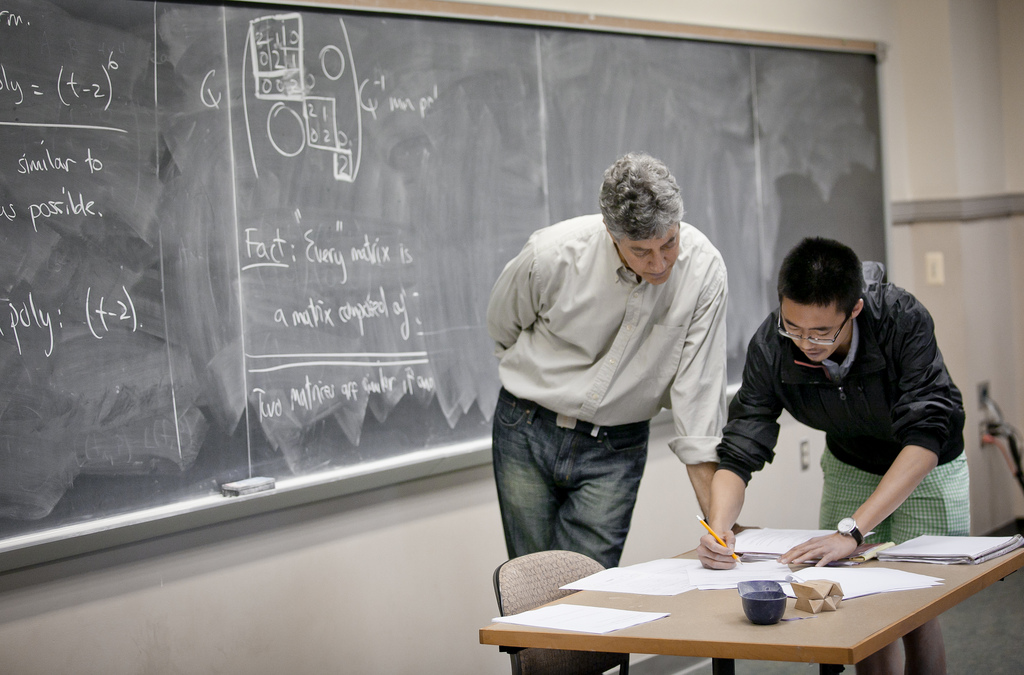 rm.
oly = (t-2)⁶
similar to
as possible.
poly: (t-2).
Q
2 1 0
0 2 1
0 0 2
2 1
0 2
2
Q⁻¹ min po
Fact: "Every" matrix is
a matrix composed of:
Two matrices are similar if and